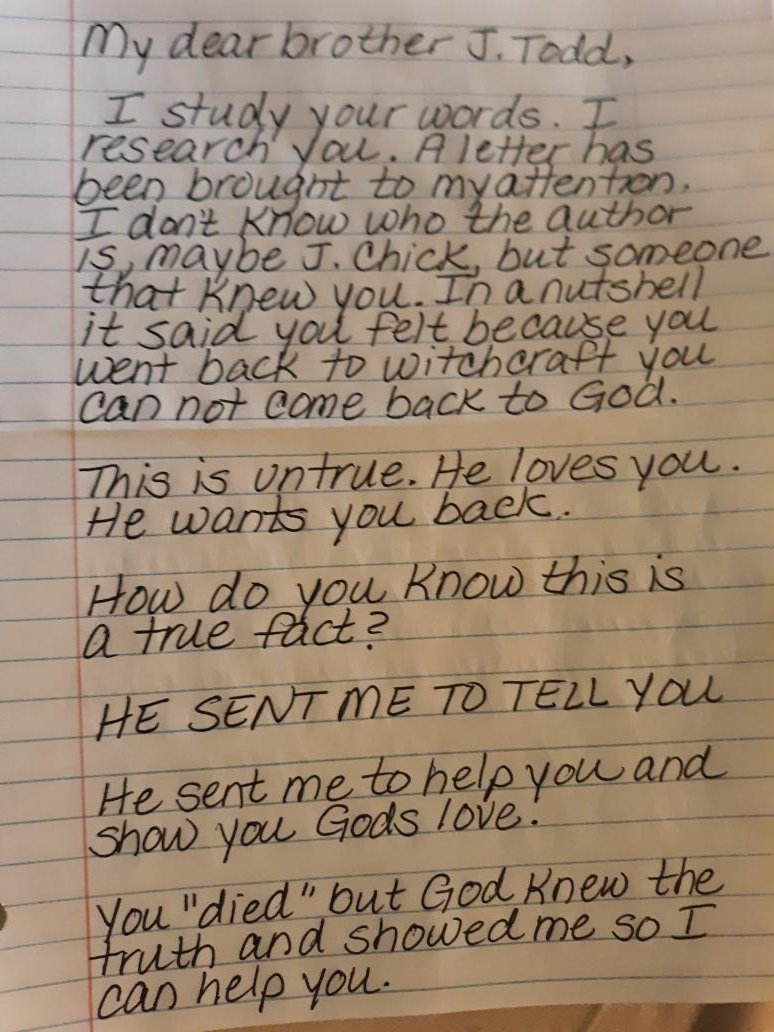 My dear brother J. Todd,
I study your words. I
research you. A letter has
been brought to my attention.
I don't know who the author
is, maybe J. Chick, but someone
that knew you. In a nutshell
it said you felt because you
went back to witchcraft you
can not come back to God.
This is untrue. He loves you.
He wants you back.
How do you know this is
a true fact?
HE SENT ME TO TELL YOU
He sent me to help you and
show you Gods love.
You "died" but God knew the
truth and showed me so I
can help you.